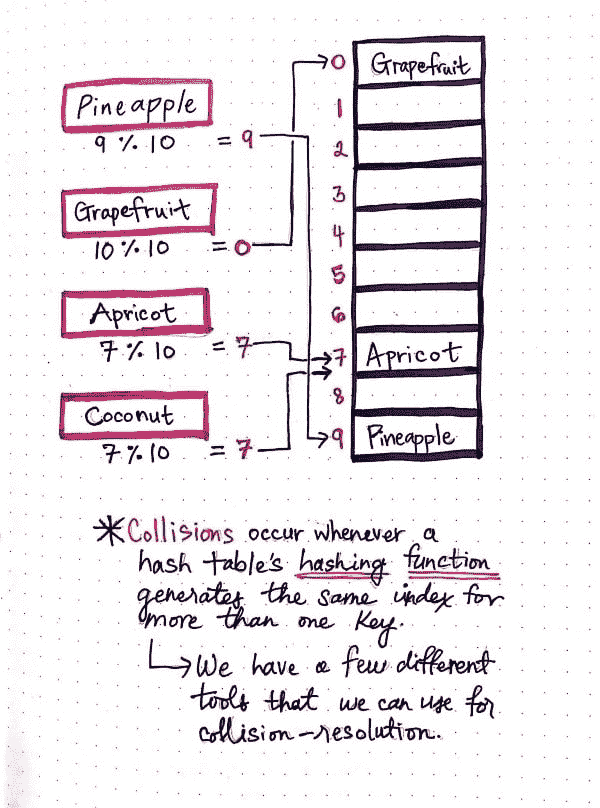 Pineapple
9 % 10 = 9
Grapefruit
10 % 10 = 0
Apricot
7 % 10 = 7
Coconut
7 % 10 = 7
0 Grapefruit
1
2
3
4
5
6
7 Apricot
8
9 Pineapple
*Collisions occur whenever a
hash table's hashing function
generates the same index for
more than one key.
We have a few different
tools that we can use for
collision-resolution.